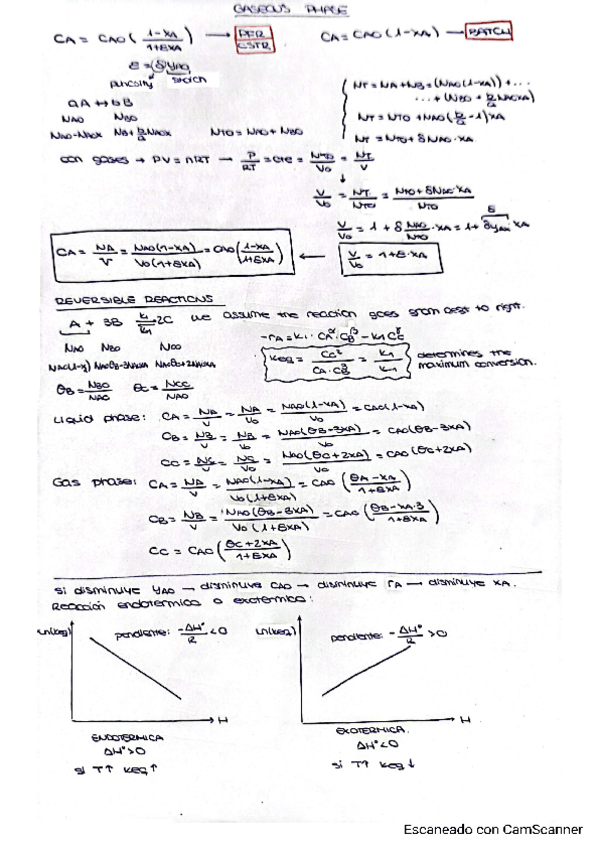 GASEOUS PHASE
CA = CAO (1-XA / 1+εXA) → PFR CSTR
CA = CAO (1-XA) → BATCH
ε = δ yAO
stoich
aA ↔ bB
NAO NBO
NTO = NAO + NBO
NT = NA + NB = (NAO(1-XA)) + ...
... + (NBO + b/a NAOXA)
NT = NTO + NAO (b/a - 1) XA
NT = NTO + δ NAO · XA
con gases → PV = nRT → P/RT = cte = NTO/VO = NT/V
↓
V/VO = NT/NTO = NTO + δNAO·XA / NTO
V/VO = 1 + δ NAO/NTO · XA = 1 + δyAO · XA
ε
CA = NA/V = NAO(1-XA) / VO(1+εXA) = CAO (1-XA / 1+εXA) ← V/VO = 1 + ε·XA
REVERSIBLE REACTIONS
A + 3B k1/k-1 2C we assume the reaction goes from left to right.
NAO NBO NCO
-rA = k1 · CA^α · CB^β - k-1 CC^γ
Keq = CC² / CA · CB³ = k1/k-1 determines the
maximum conversion.
θB = NBO/NAO θC = NCO/NAO
Liquid phase: CA = NA/V = NA/VO = NAO(1-XA)/VO = CAO(1-XA)
CB = NB/V = NB/VO = NAO(θB-3XA)/VO = CAO(θB-3XA)
CC = NC/V = NC/VO = NAO(θC+2XA)/VO = CAO(θC+2XA)
Gas phase: CA = NA/V = NAO(1-XA) / VO(1+εXA) = CAO (θA-XA / 1+εXA)
CB = NB/V = NAO(θB-3XA) / VO(1+εXA) = CAO (θB-XA·3 / 1+εXA)
CC = CAO (θC+2XA / 1+εXA)
si disminuye yAO → disminuye CAO → disminuye rA → disminuye XA.
Reacción endotermica o exotermica:
Ln(keq) pendiente: -ΔH°/R <0
Ln(keq) pendiente: -ΔH°/R >0
H
H
ENDOTERMICA
ΔH°>0
si T↑ keq↑
EXOTERMICA.
ΔH°<0
si T↑ keq↓
Escaneado con CamScanner